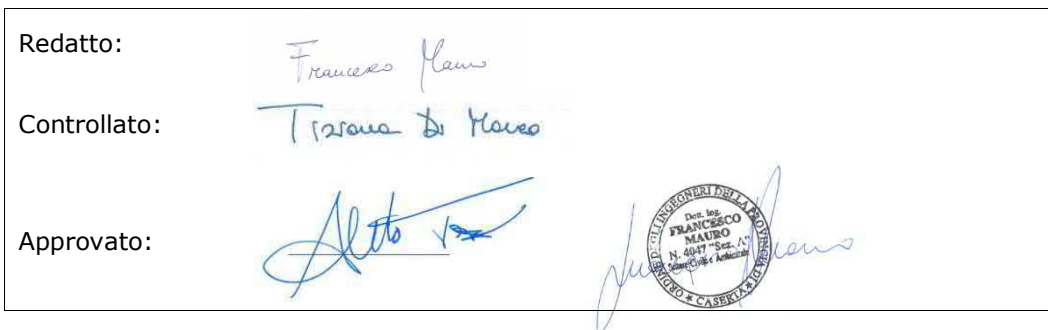 Redatto:
Francesco Mauro
Controllato:
Tiziana Di Marco
Approvato:
ORDINE DEGLI INGEGNERI DELLA PROVINCIA DI
Dott. Ing.
FRANCESCO
MAURO
N. 4047 "Sez. A"
CASERTA